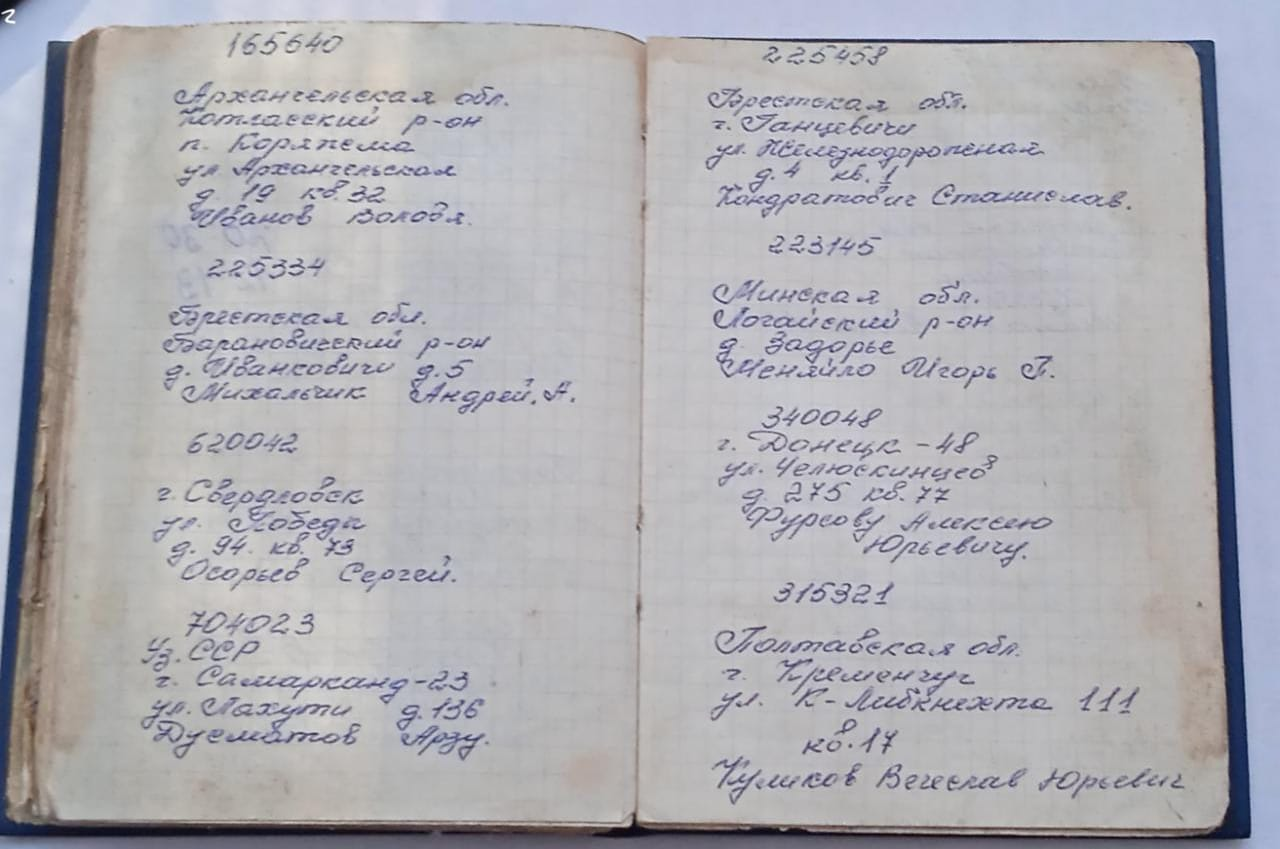 165640
Архангельская обл.
Котласский р-он
п. Коряжема
ул. Архангельская
д. 19 кв. 32
Иванов Володя.
225334
Брестская обл.
Барановичский р-он
д. Иванковичи д. 5
Михальчик Андрей. А.
620042
г. Свердловск
ул. Победы
д. 94. кв. 73
Осорьев Сергей.
704023
Уз. ССР
г. Самарканд-23
ул. Лахути д. 136
Дусматов Арзу.
225458
Брестская обл.
г. Ганцевичи
ул. Железнодорожная
д. 4 кв. 1
Кондратович Станислав.
223145
Минская обл.
Логайский р-он
д. Задорье
Меняйло Игорь П.
340048
г. Донецк - 48
ул. Челюскинцев
д. 275 кв. 77
Фурсову Алексею
Юрьевичу.
315321
Полтавская обл.
г. Кременчуг
ул. К-Либкнехта 111
кв. 17
Куликов Вечеслав Юрьевич